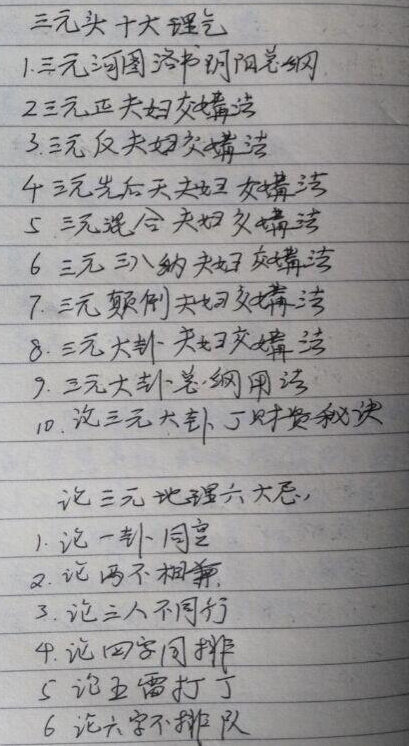 三元头十大理气
1.三元河图洛书阴阳总纲
2三元正夫妇交媾法
3.三元反夫妇交媾法
4三元先后天夫妇交媾法
5 三元混合夫妇交媾法
6 三元三八纳夫妇交媾法
7.三元颠倒夫妇交媾法
8.三元大卦夫妇交媾法
9.三元大卦总纲用法
10.论三元大卦丁财贵秘诀
论三元地理六大忌,
1.论一卦同
2.论两不相兼
3.论三人不同行
4.论四字同排
5 论五雷打丁
6 论六字不排队